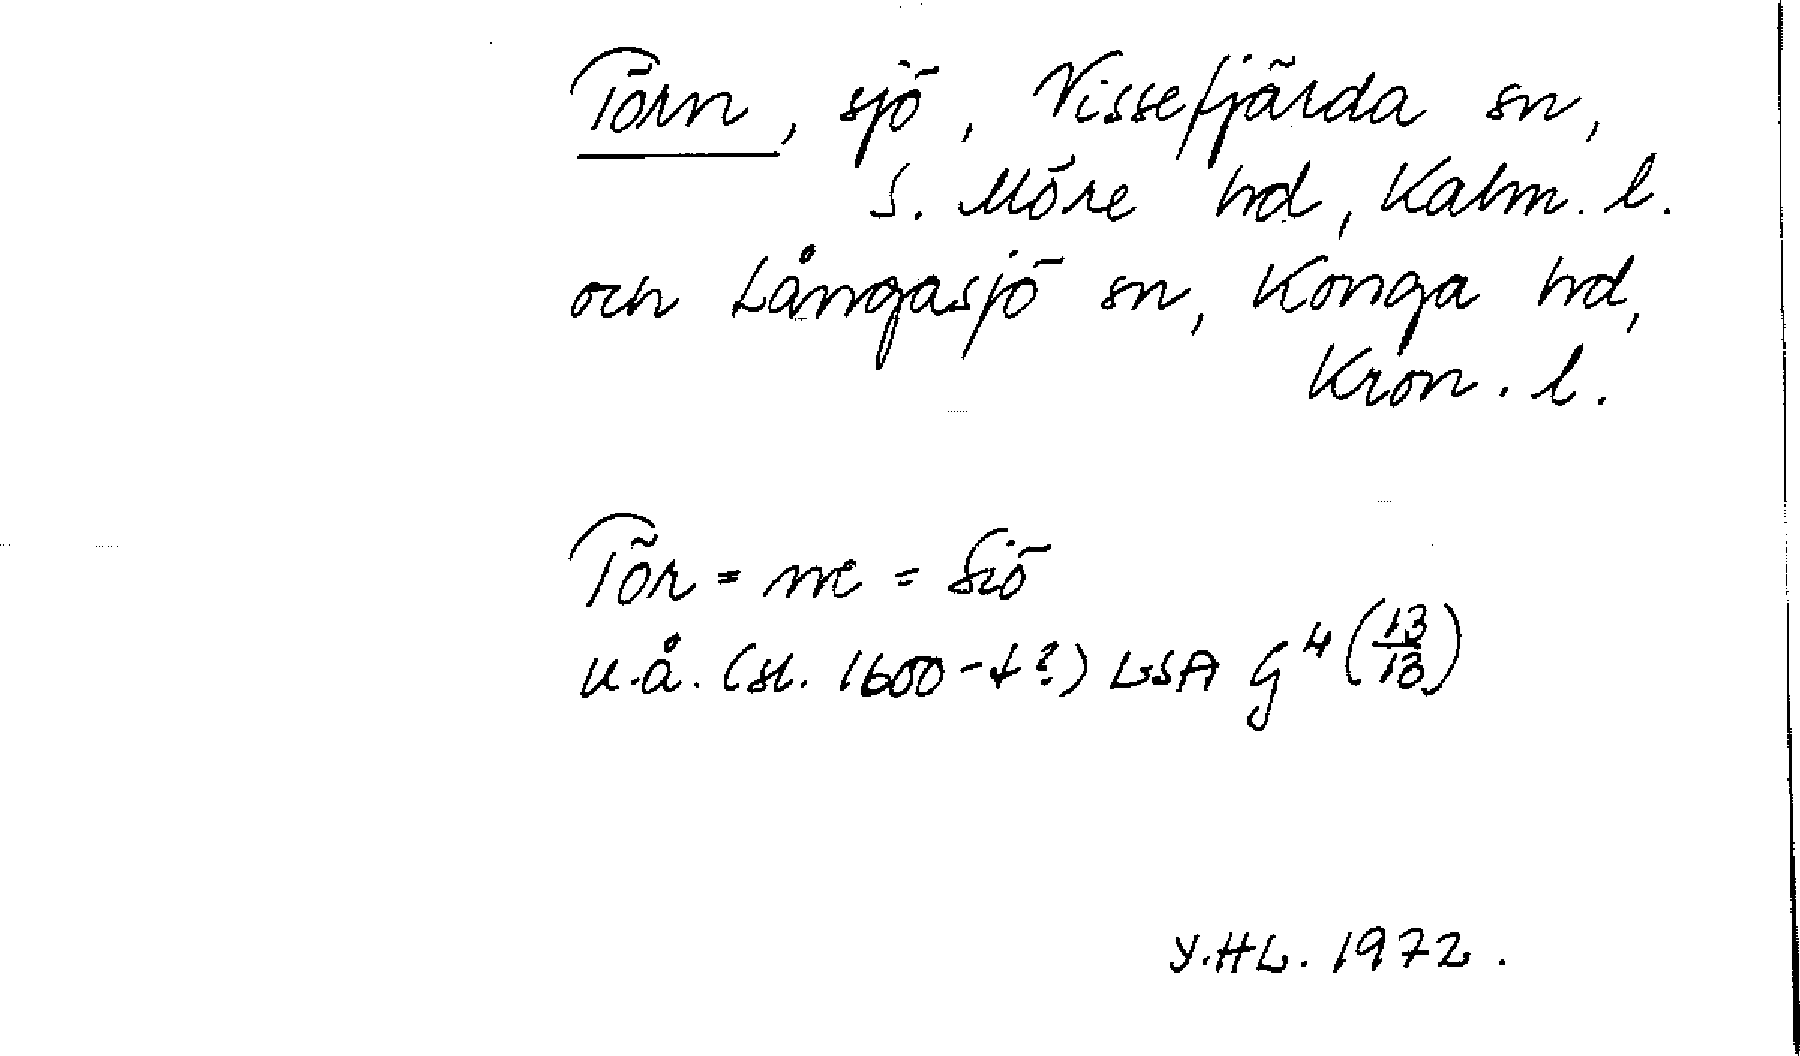 Törn, sjö, Vissefjärda sn,
S. Möre hd, Kalm. l.
och Långasjö sn, Konga hd,
Kron. l.
Tör = ne = Siö
u.å. (sl. 1600-t?) LSA G⁴ (13/13)
Y.HL. 1972.